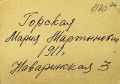 Горская
Мария Мартыновна
1911.
Наваринская 3